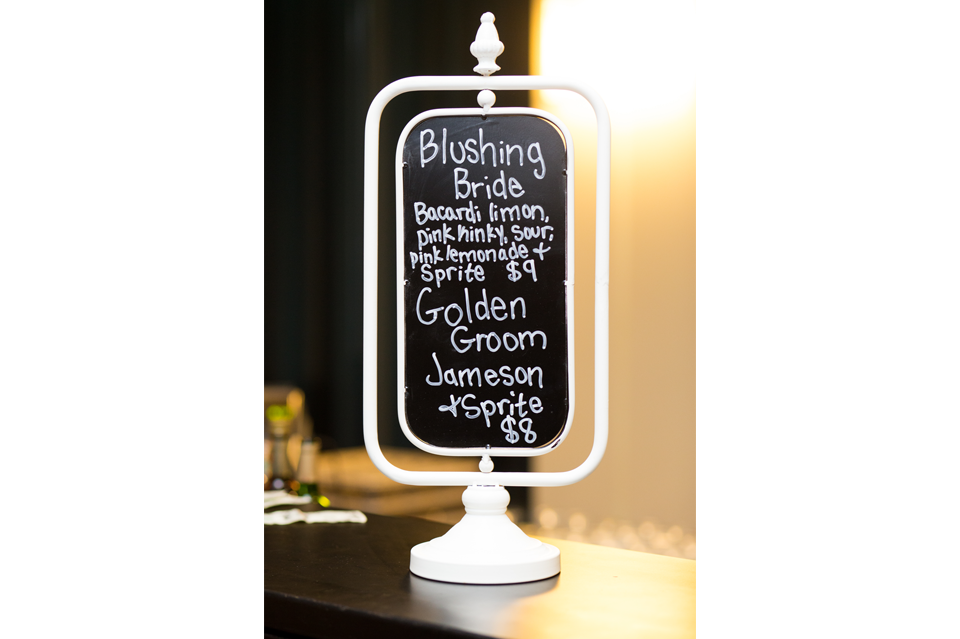 Blushing
Bride
Bacardi limon,
pink kinky, sour,
pink lemonade +
Sprite $9
Golden
Groom
Jameson
+ Sprite
$8